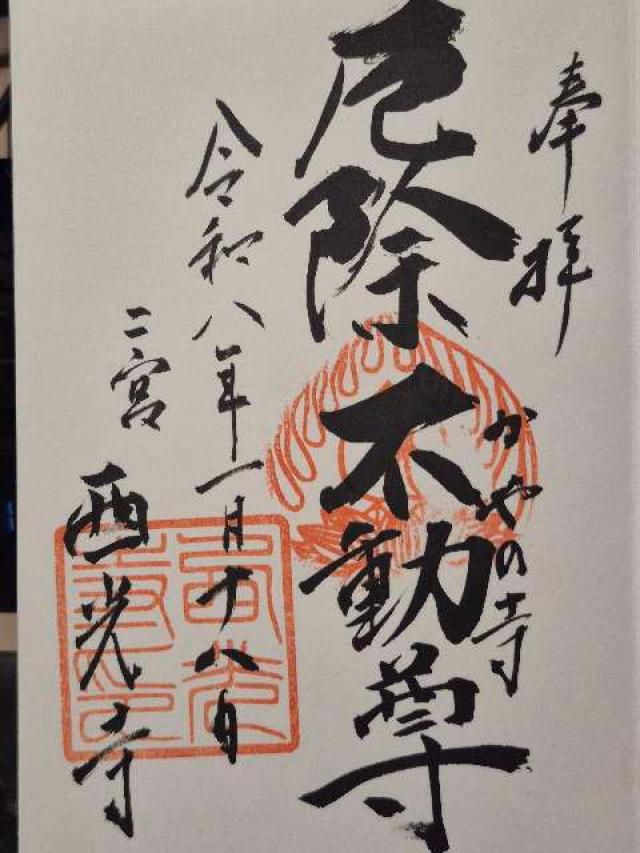 奉拝
かやの寺
厄除不動尊
令和八年一月十八日
二宮
西光寺
西光寺印